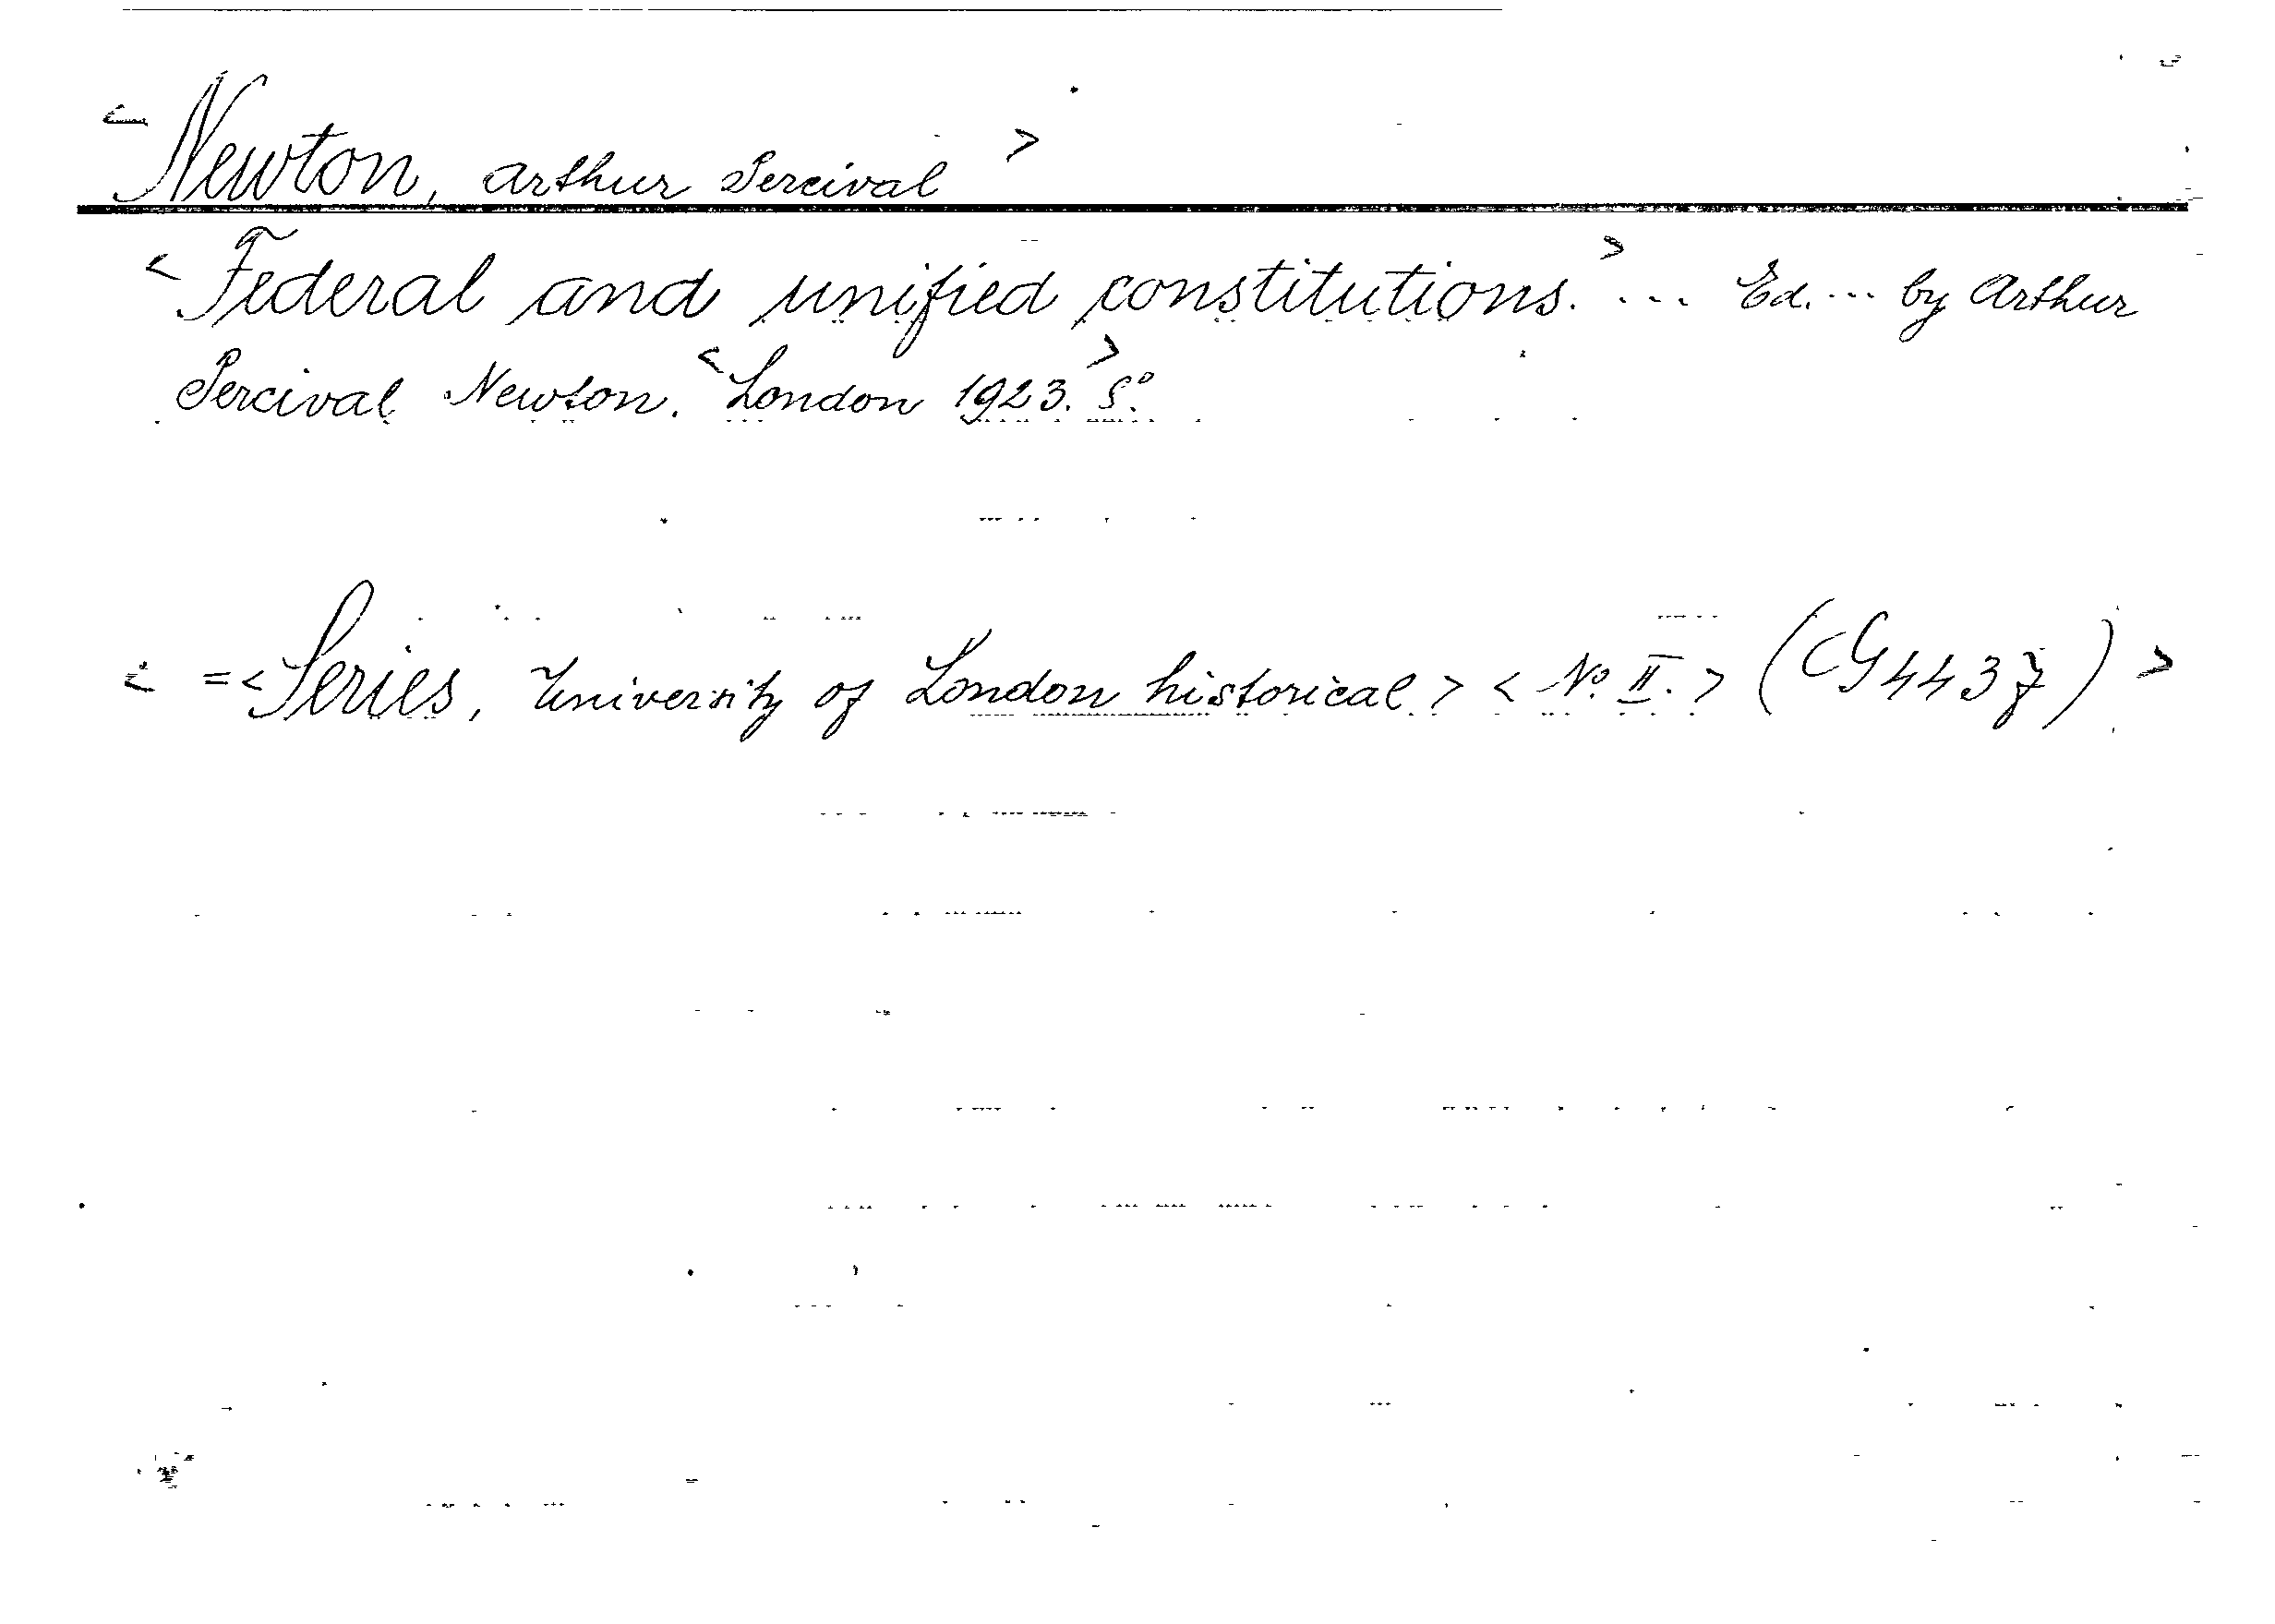 < Newton, Arthur Percival >
< Federal and unified constitutions. > ... Ed. ... by Arthur
Percival Newton. < London 1923. > 8°.
< = < Series, University of London historical > < No. II. > (CG 4437) >